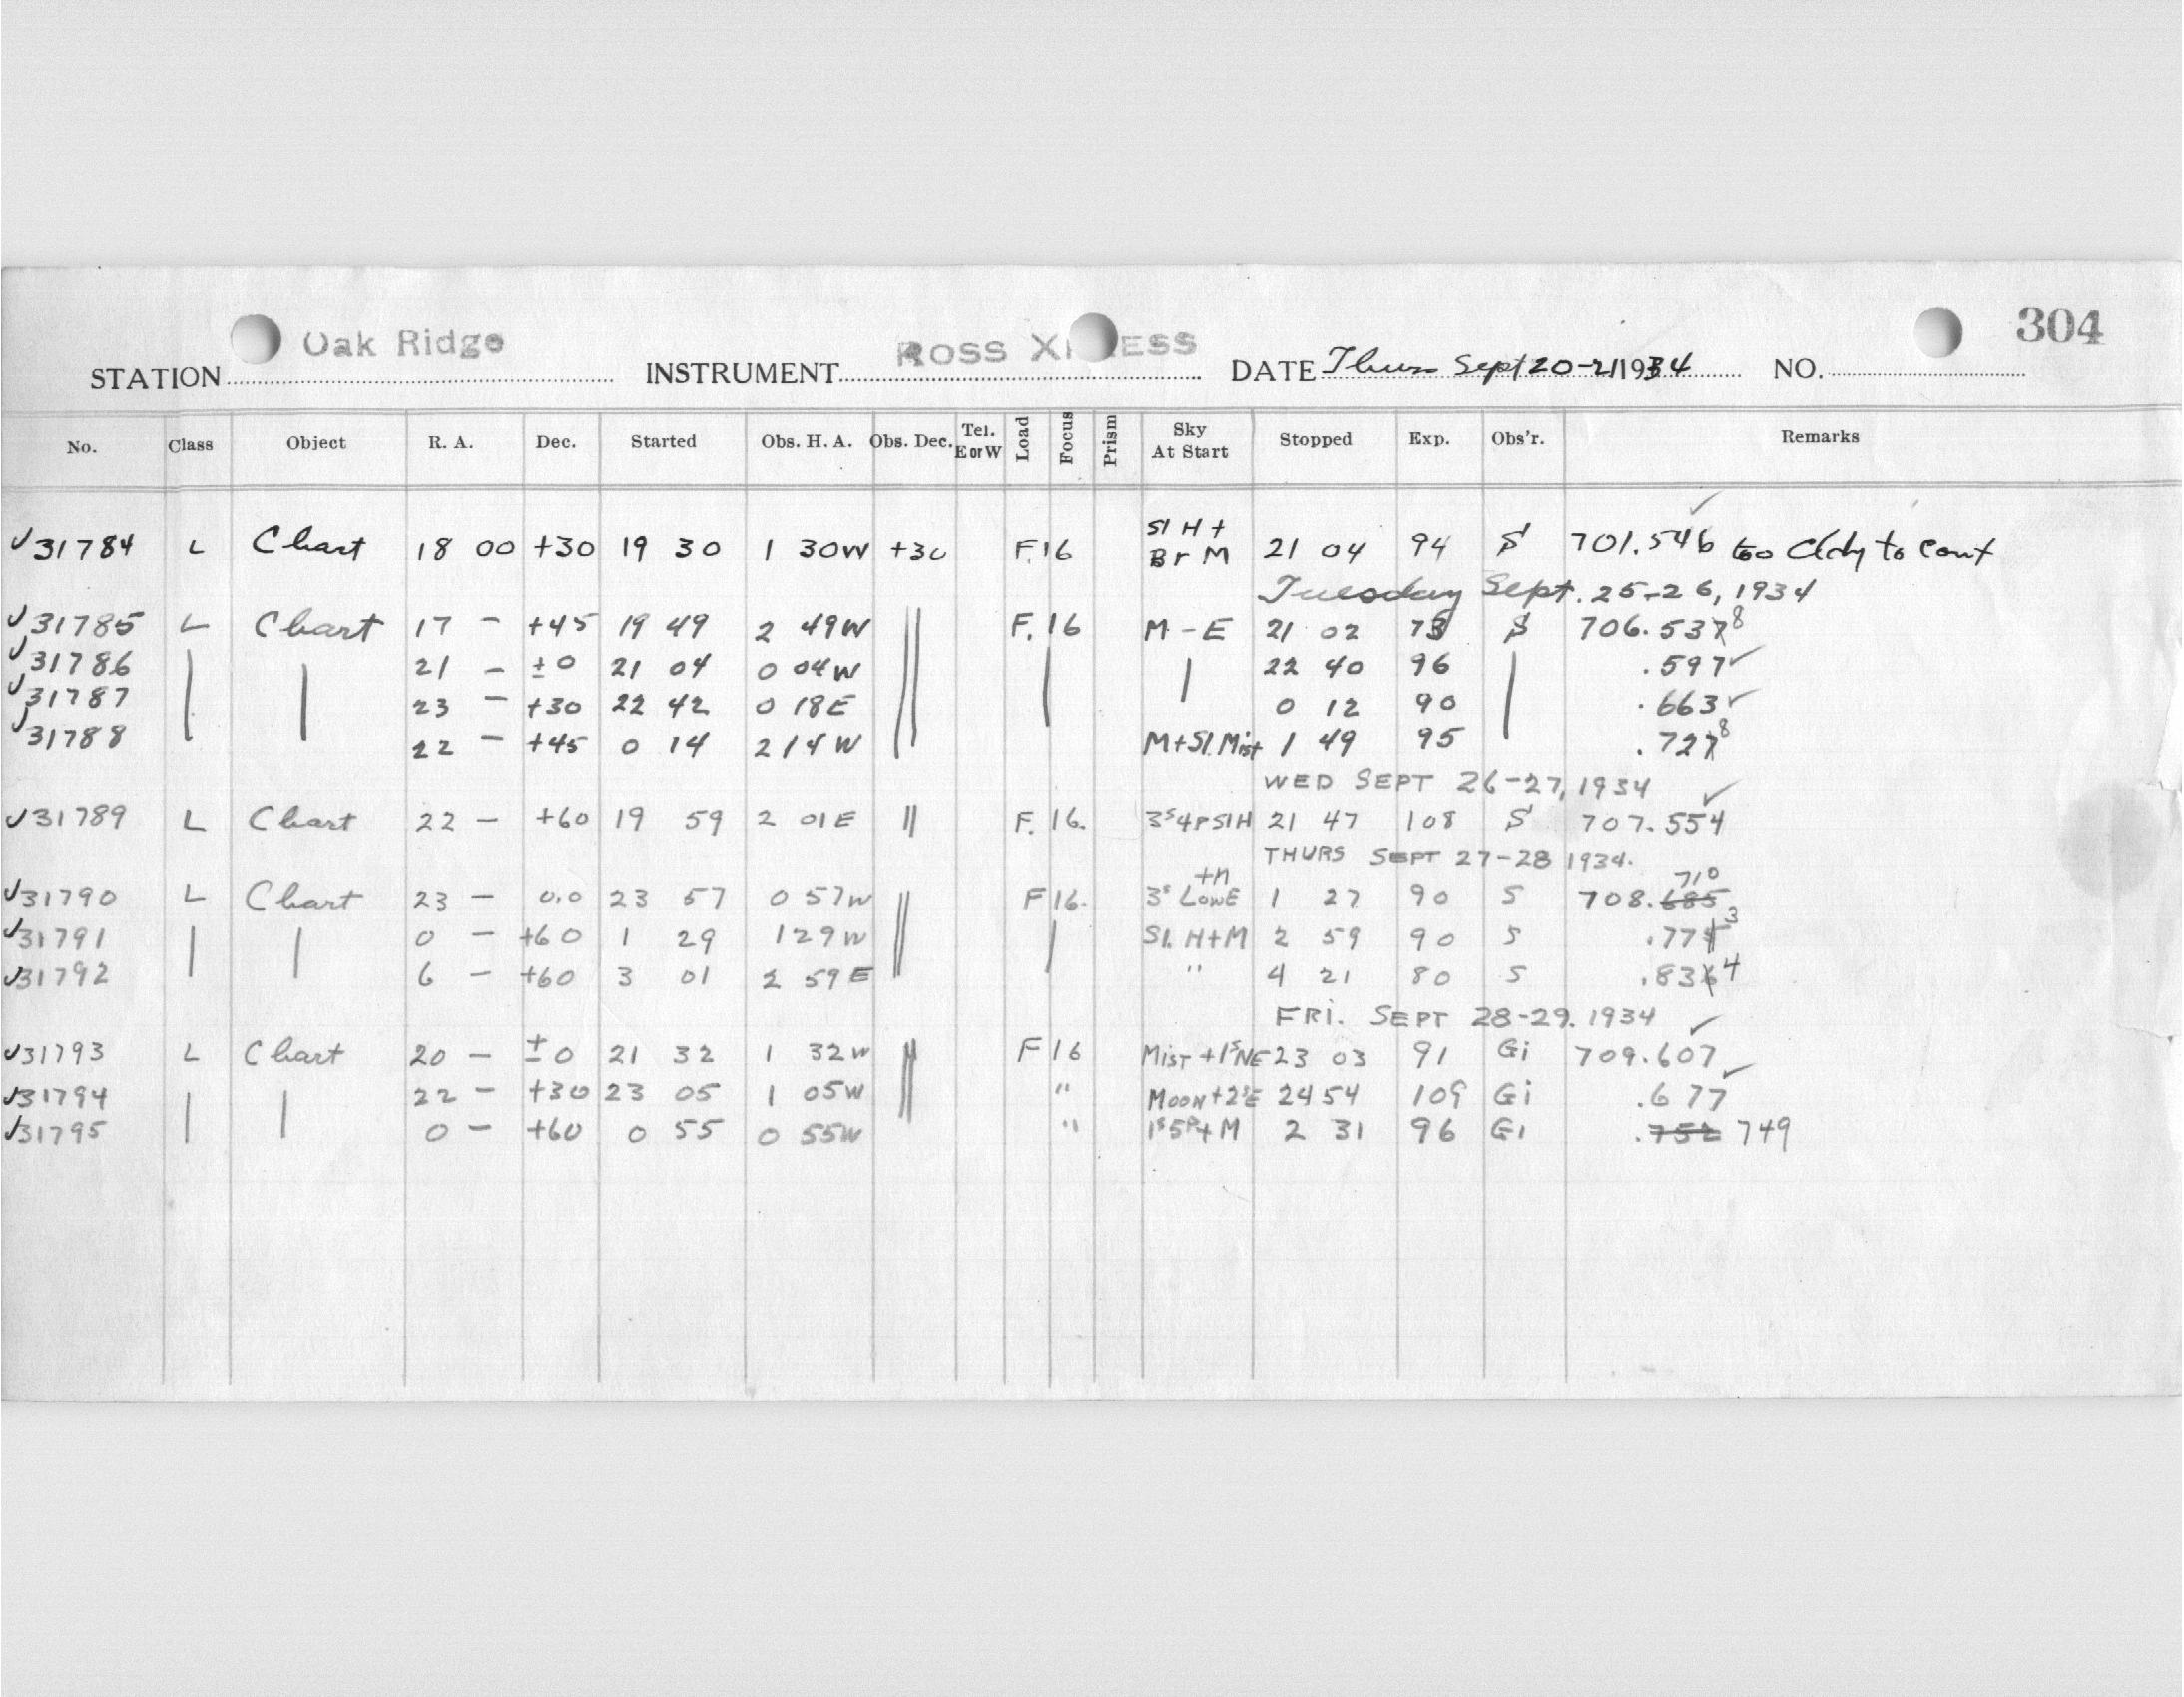 304
Oak Ridge ROSS X ESS
STATION INSTRUMENT DATE Thurs Sept 20-21 1934 NO.
No. Class Object R. A. Dec. Started Obs. H. A. Obs. Dec. Tel. E or W Load Focus Prism Sky At Start Stopped Exp. Obs'r. Remarks
31784 L Chart 18 00 +30 19 30 1 30W +30 F.16 Sl H + Br M 21 04 94 S 701.546 too Cldy to cont
Tuesday Sept. 25-26, 1934
31785 L Chart 17 - +45 19 49 2 49W || F. 16 M - E 21 02 73 S 706.5378
31786 21 - ±0 21 04 0 04W 22 40 96 .597
31787 23 - +30 22 42 0 18E 0 12 90 .663
31788 22 - +45 0 14 2 14W M+Sl.Mist 1 49 95 .7278
WED SEPT 26-27, 1934
31789 L Chart 22 - +60 19 59 2 01E || F. 16. 3s4PSlH 21 47 108 S 707.554
THURS SEPT 27-28 1934.
31790 L Chart 23 - 0.0 23 57 0 57W || F 16. 3s LowE +M 1 27 90 S 708.685 710
31791 0 - +60 1 29 1 29W Sl. H+M 2 59 90 S .77 3
31792 6 - +60 3 01 2 59E " 4 21 80 S .836 4
FRI. SEPT 28-29. 1934
31793 L Chart 20 - ±0 21 32 1 32W || F 16 Mist +1sNE 23 03 91 Gi 709.607
31794 22 - +30 23 05 1 05W " Moon+2sE 24 54 109 Gi .677
31795 0 - +60 0 55 0 55W " 1s5P+M 2 31 96 Gi .752 749